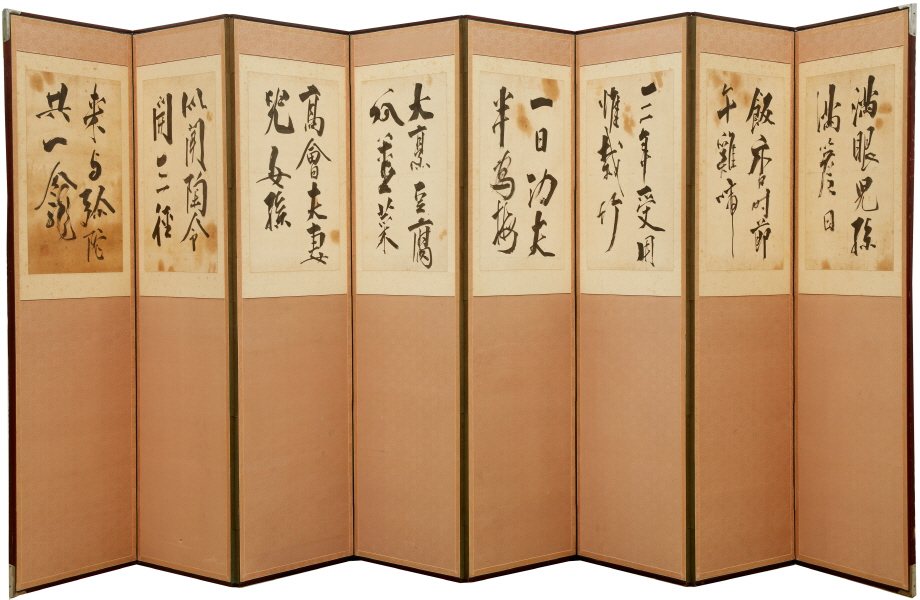 滿眼兒孫
滿簷日
飯香時節
午雞啼
三年受用
惟栽竹
一日功夫
半為梅
大烹豆腐
瓜薑菜
高會夫妻
兒女孫
似聞陶令
開三徑
來与弥陀
共一龕